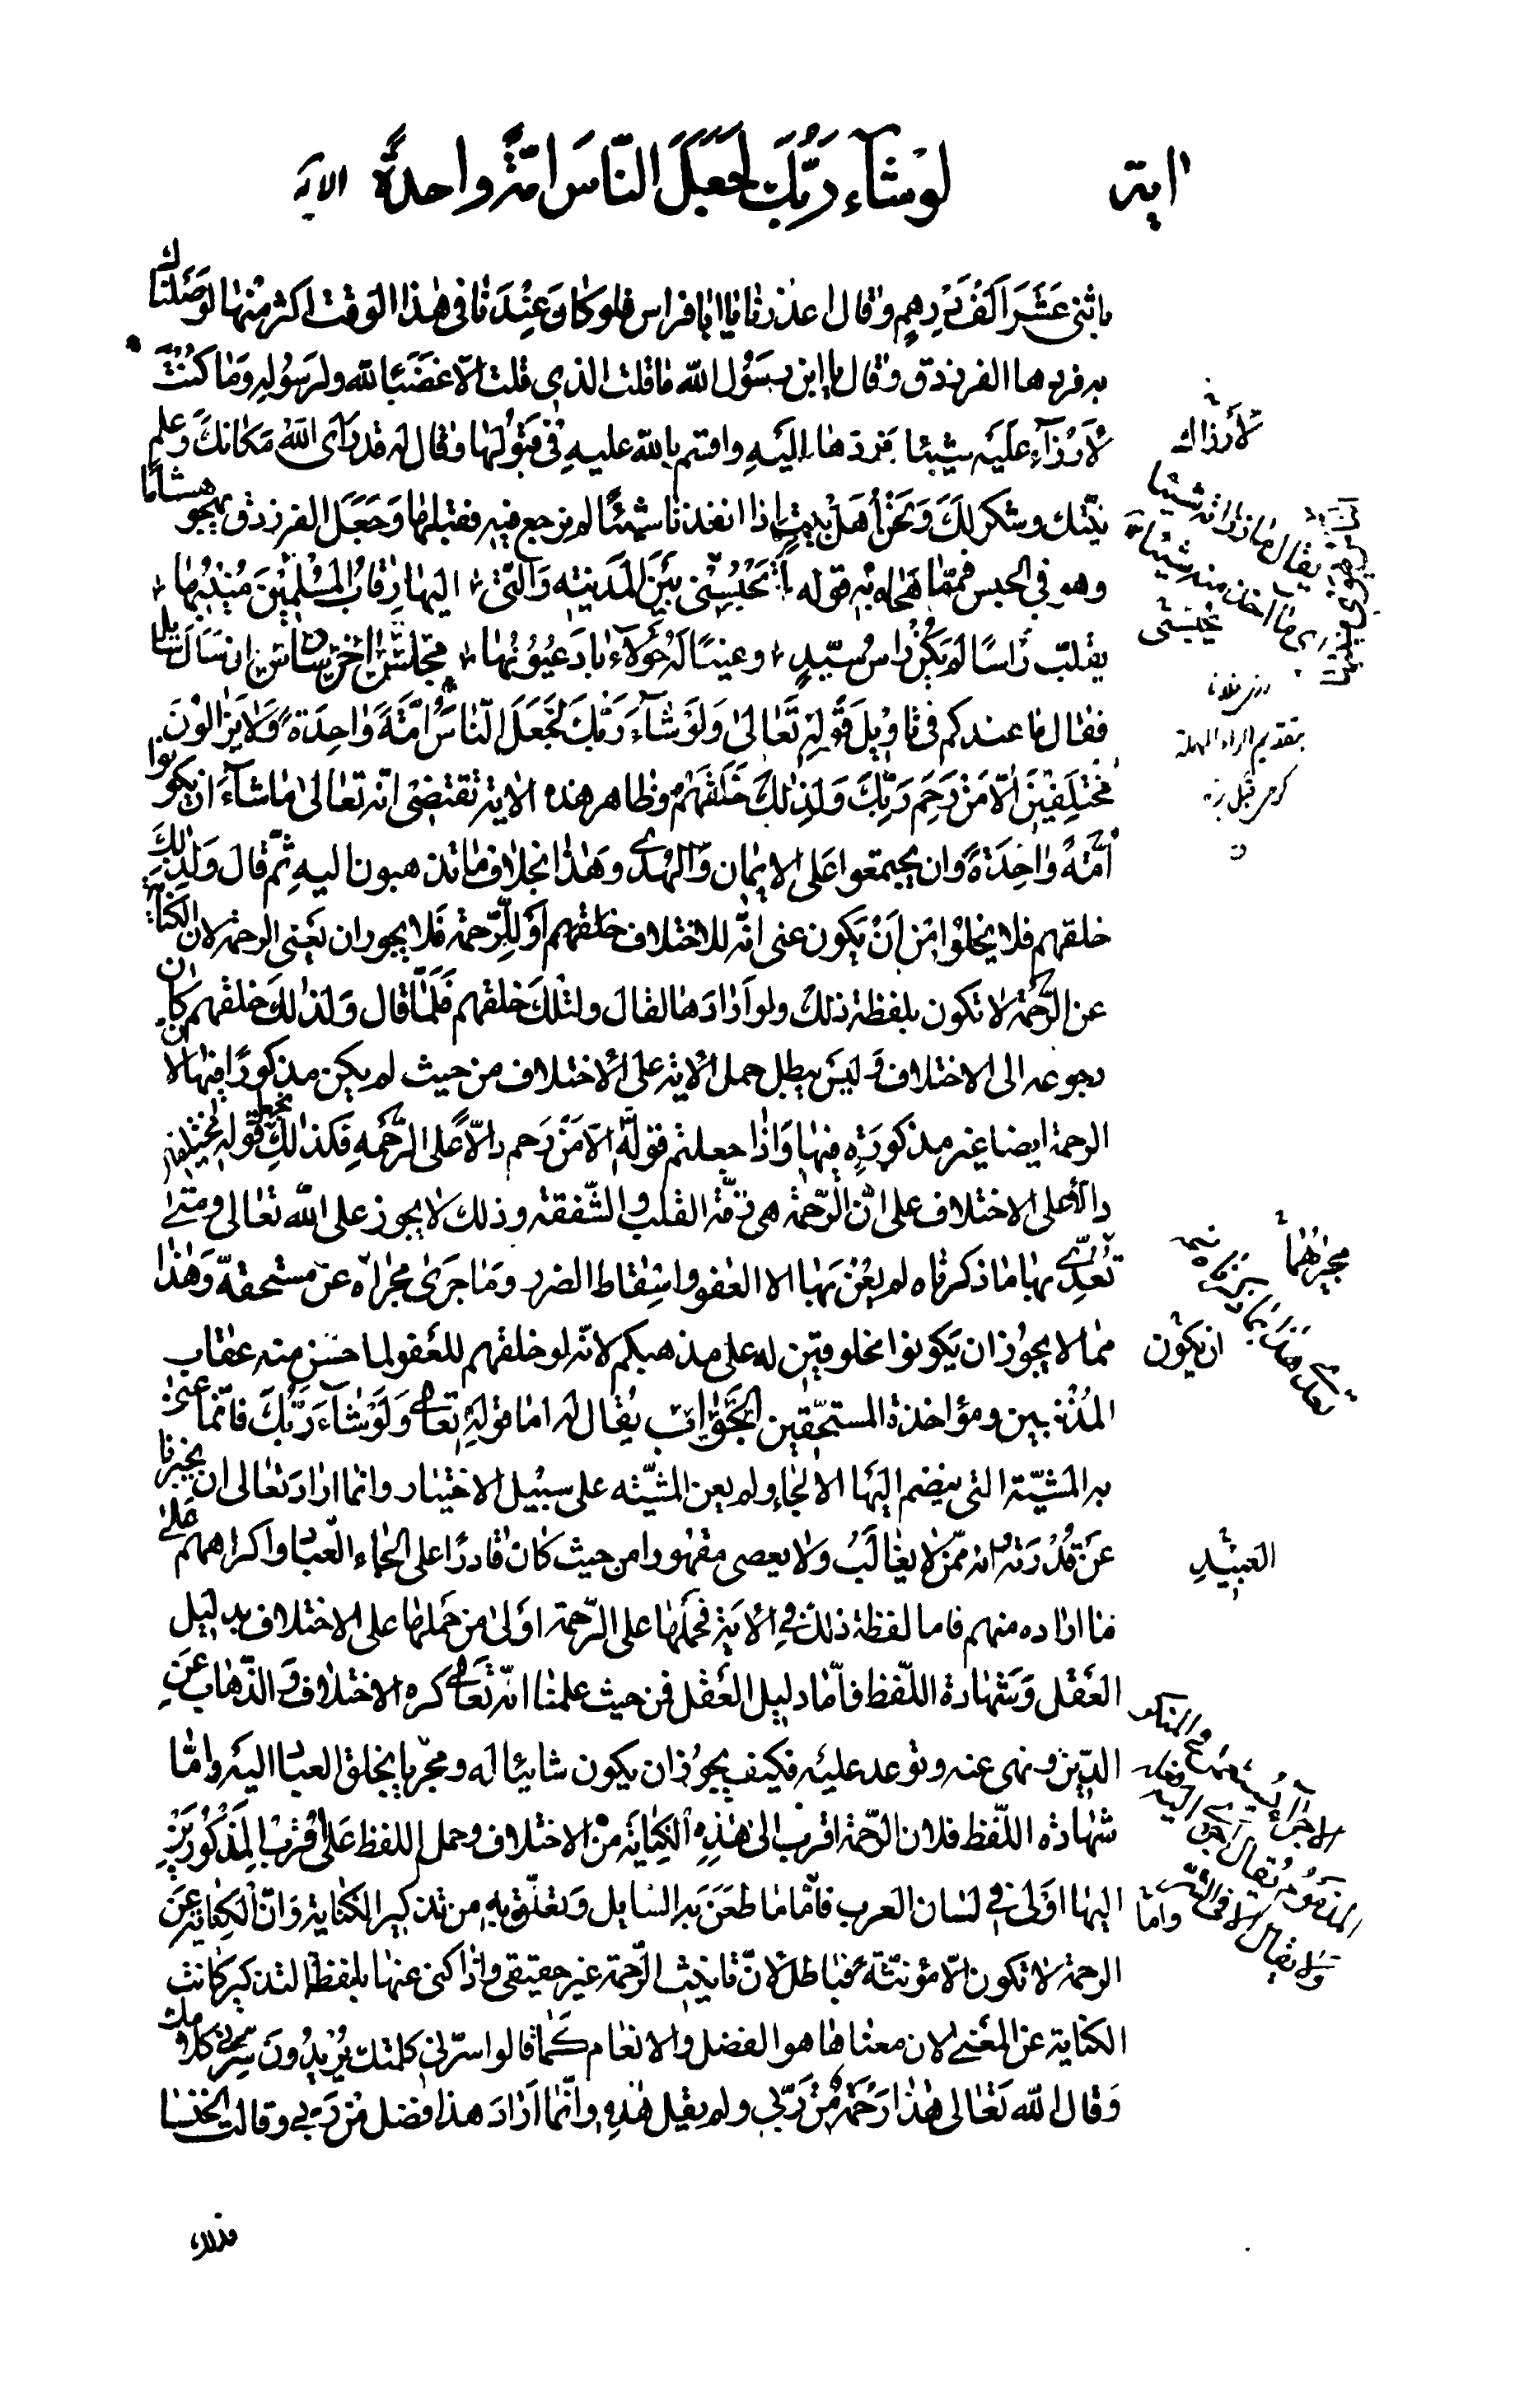 اية
لوشآء ربّك لجعل النّاس امّةً واحدةً الاية
باثنى عَشَرَ اَلفَ دِرهمٍ وقال اعذرنا يا ابا فراس فلو كان عِنْدَنا فى هٰذا الوقت اكثر مِنْها لوَصَلناك
به فردها الفرزدق وقال يا ابن رسَوُل الله ما قلت الذى قلت الّا غضَبًا لله ولرسُولِه وَما كُنْتُ
لاَرْزَأ عَليَه شيئا فردّها اليَهِ واقسم بالله عليهِ فى قبَوُلِها وقال له قد رَاَى اللهُ مَكانكَ وعلم
نيّتك وشكر لكَ وَنحَنُ اهَل بيتٍ اذا انفذنا شيئًا لم نرجع فيهِ فقبلها وَجعَلَ الفرزدق يهجو هشامًا
وهو فى الحبس فممّا هَجاه بِهِ قوله أتَحْبِسُنى بَيْنَ المَدينةِ وَالّتى اليها رِقابُ المسُلِمِيْنَ مُنِيْبُها
يقلبّ رَاسًا لم يَكُنْ رَاسَ سُيّدٍ وعينًا لَهُ حَوْلآءَ بادٍ عُيُوُبُها مجلسٌ اخرُ ان سَاَلَ سَائل
فقال ما عندكم فى تاويل قَوَلِهِ تَعٰالىٰ وَلَوَ شآءَ رَبُّكَ لجَعَلَ النّاسَ اُمَّةً وٰاحِدَةً وَلا يَزٰالوُنَ
مُختَلِفيْنَ اِلّا مَنْ رَحِمَ رَبُّكَ وَلِذٰلكَ خَلَقَهُمْ وظاهر هذه الاية تقتضى انّه تعالىٰ ما شآءَ ان يكونوا
اُمَّةً وٰاحِدَةً وان يجتمعوا عَلى الايمان وَالهُدى وهَذا بخلاف ما تذهبون اليهِ ثمّ قالَ وَلِذٰلكَ
خلقهم فلا يخلوا مِن اَنْ يَكون عنى انّه للاختلاف خلقهم اوَ للِرّحمة فَلا يجوز ان يَعنى الرحمة لان الكناية
عن الرّحمة لا تكون بلفظة ذلك ولو اَرٰادَها لقالَ ولتلكَ خلقهم فَلَمّا قال وَلذٰلكَ خلقهم كان
رجوعه الى الاختلاف وَليَسَ يبطل حمل الاية على الاختلاف من حيث لم يكن مذكورًا فيها لان
الرحمة ايضا غير مذكورَة فيها وَاذا جعلتم قولَهُ الّا مَنْ رَحم دالّاً على الرَّحَمةِ فكذٰلكِ قَولهِ مُختَلِفين
دالّا على الاختلاف على انّ الرّحمة هى رِقّة القلب والشّفقة وذلك لا يجوز على الله تعالى ومتىٰ
تُعُدّى بها ما ذكرناه لم يعُنَ بَها الا العفو واسقاط الضرر وما جَرىٰ مجراه عن مستحقه وَهٰذا
ممّا لا يجوُز ان يَكونوا مخلوقين له على مذهبكم لانّه لو خلقهم للعفو لما حسَن منه عقاب
المُذْنبين ومؤاخذة المستحّقين الجَوٰاب يُقال له امّا قولهِ تعالى وَلَوَشآءَ رَبُّكَ فانّما عنىٰ
به المَشيّة التى ينضم اليَها الالجاء ولم يعن المشيّته على سبيُل الاختيار وانما ارٰادَ تعٰالى ان يخبرنا
عَن قُدْرَتهُ وانه ممّن لا يغٰالَبُ ولا يعصى مقهورا من حيث كان قادرًا على الجاء العباد واكراههم عَلى
ما اراده منهم فاما لفظة ذلك فى الاية فحملَها على الرّحمة اولىٰ من حَملها على الاختلاف بدليل
العَقل وَشَهادة اللّفظ فأمّا دليل العَقل فمن حيث علمنا انّه تَعالى كره الاختلاف وَالذّهاب عَنِ
الدّين ونهى عنه وتوعد عليَه فكيف يجوُز ان يكون شائيًا لَه ومجريا بخلق العباد اليَه وامّا
شهادة اللّفظ فلان الرّحمة اقرب الى هٰذِهِ الكِنايَة منْ الاختلاف وحمل اللفظ عَلى اَقرَب المَذكُورَيْنِ
اليها اوَلى فى لسَان العرب فأمّا ما طعَنَ بَه السّايل وَتعلّق بِهِ من تذكير الكنٰاية وَانّ الكِناية عَنَ
الرحمة لا تكون الّا مؤنثَة فباطل لانّ تانيث الرّحمة غير حقيقى واذا كنى عنها بلفظ التذكير كانت
الكناية عن المعَنى لان معناها هو الفضل والانعام كَما قالوا سرّنى كلمتك يُرْيدُونَ سَرّنى كلامك
وَقال الله تعَالى هٰذا رَحْمَةٌ مِنْ رَبّى ولم يقل هٰذِهِ وانّما اَرٰادَ هذا فضل مِنْ رَبى وقالت الخنسا
لاَرزأك
يحبسنى
بتقديم الراء المهملة
مجراهُما
ان يكوُن
العَبيْدِ
وامّا